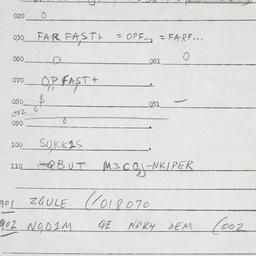 020 0
030 FAR FAST+ = OPF... = FARF...
060 0 061 0
070 OP FAST+
080 $ 081 —
090 0
100 SQKK2S
110 QBUT M3CQJ-NKIPER
901 ZGULE (/018070
902 NQD1M GE NDKH DEM (002